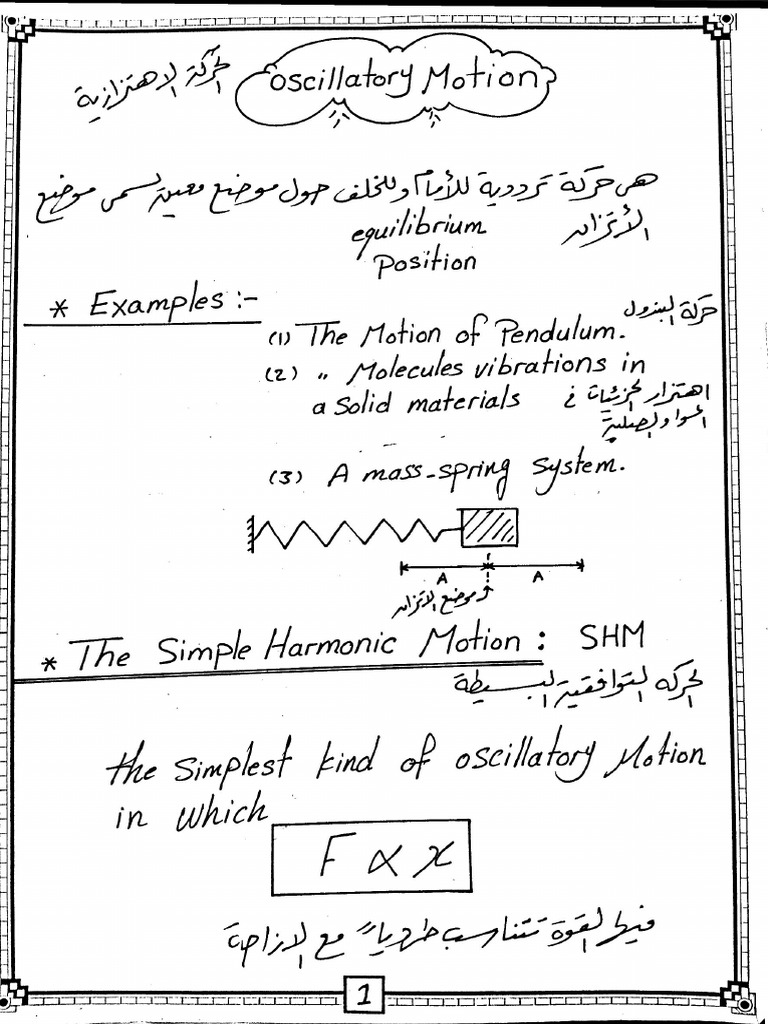 oscillatory Motion
الحركة الاهتزازية
هى حركة ترددية للأمام وللخلف حول موضع معين يسمى موضع
الأتزان
equilibrium
Position
* Examples :-
(1) The Motion of Pendulum.
حركة البندول
(2) " Molecules vibrations in
a Solid materials
اهتزاز الجزئيات فى
المواد الصلبة
(3) A mass-spring system.
A A
موضع الاتزان
* The Simple Harmonic Motion : SHM
الحركة التوافقية البسيطة
the simplest kind of oscillatory Motion
in which
F ∝ x
فيها القوة تتناسب طردياً مع الازاحة
1